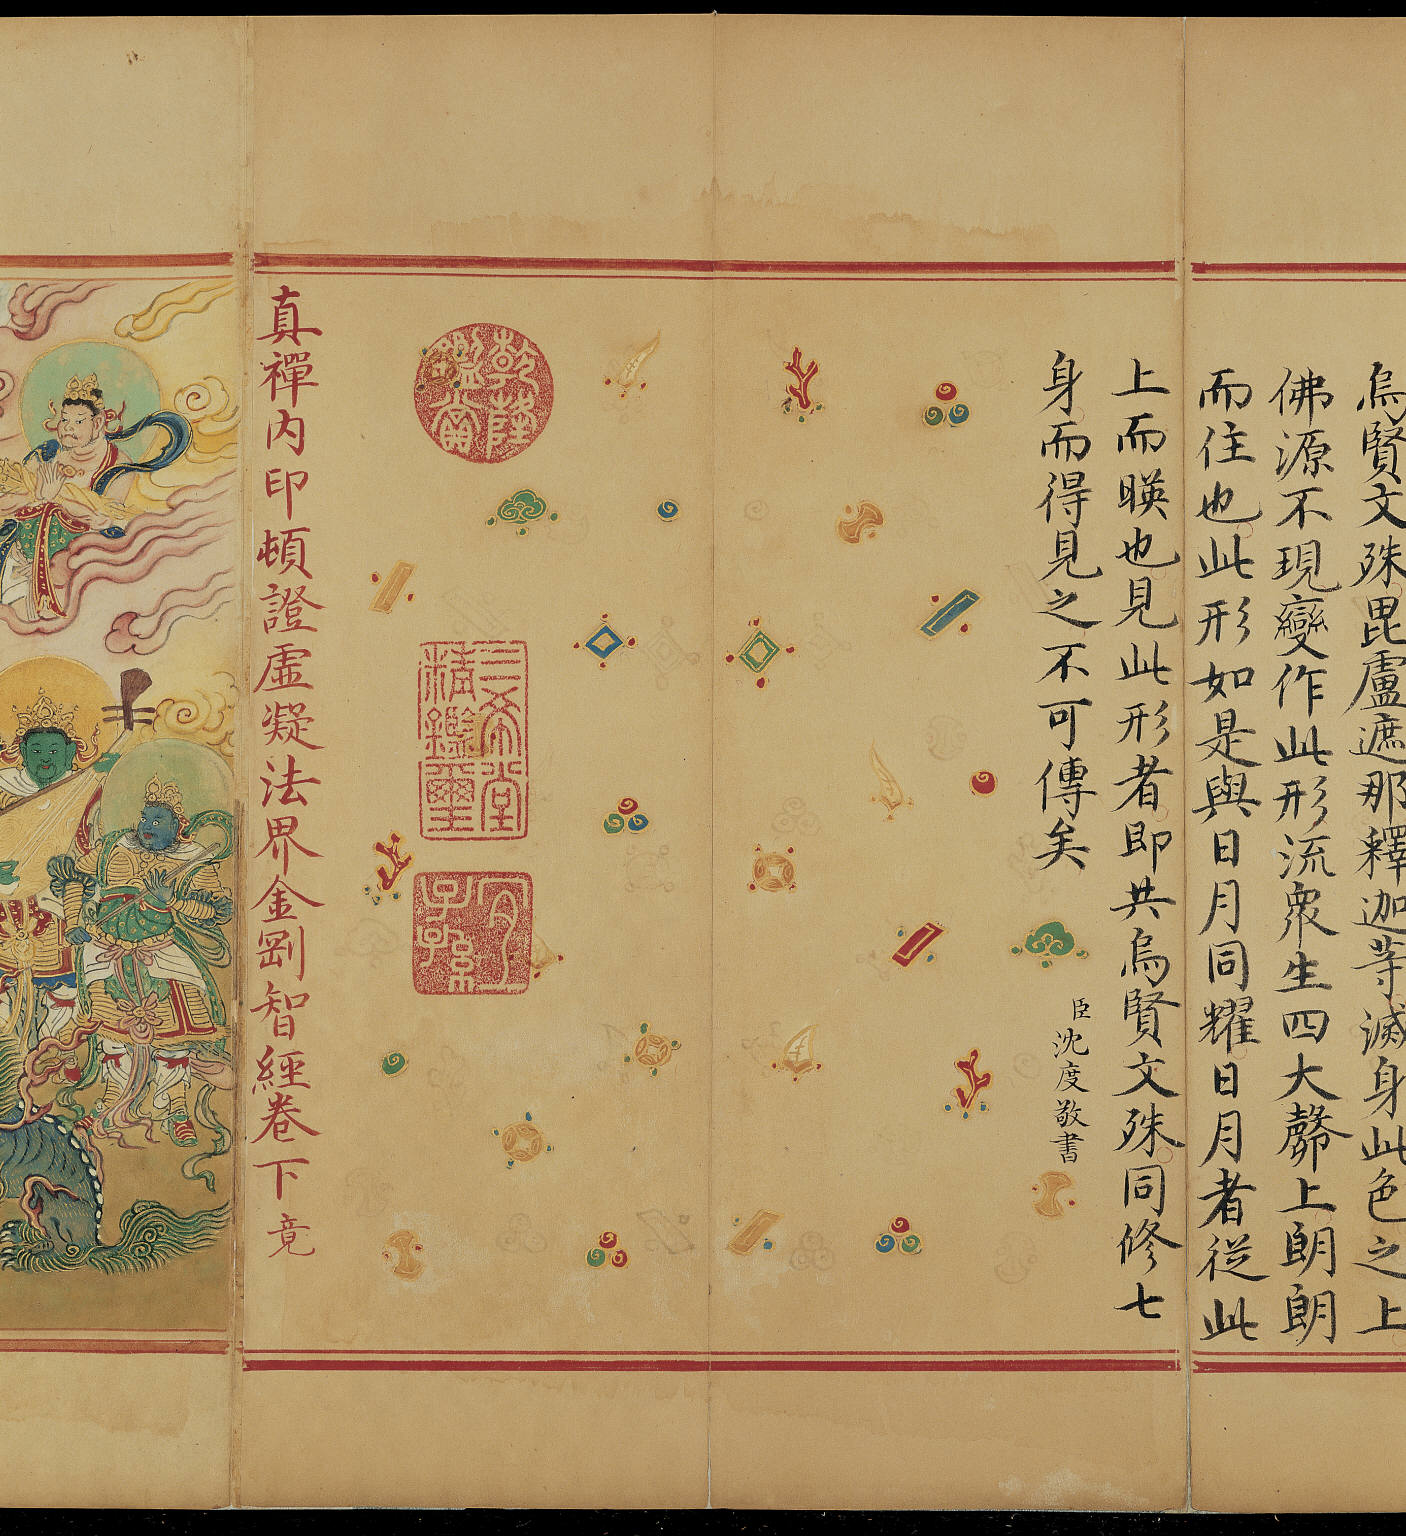 烏賢文殊毘盧遮那釋迦等滅身此色之上
佛源不現變作此形流眾生四大髎上朗朗
而住也此形如是與日月同耀日月者從此
上而暎也見此形者即共烏賢文殊同修七
身而得見之不可傳矣
臣沈度敬書
乾隆鑑賞
三希堂精鑑璽
宜子孫
真禪內印頓證虛凝法界金剛智經卷下竟